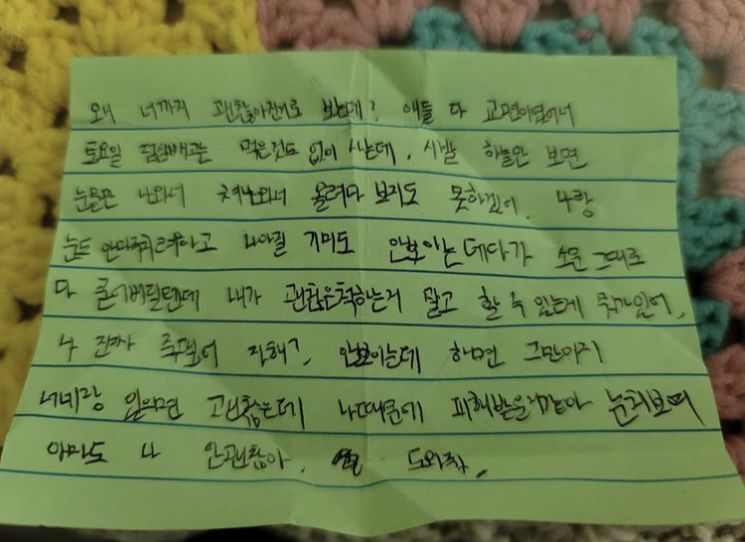 왜 너까지 괜찮아진거로 보는데? 애들 다 교면이였어서
토요일 점심빼고는 먹은것도 없이 사는데, 시발 하늘만 보면
눈물만 나와서 쳐나와서 올려다 보지도 못하겠어. 나랑
눈도 안마주치려하고 나아질 기미도 안보이는데다가 소문 그대로
다 믿어버릴텐데 내가 괜찮은척하는거 말고 할 수 있는게 뭐가있어,
나 진짜 죽겠어 자해?, 안보이는데 하면 그만이지
너네랑 있으면 괜찮은데 나때문에 피해받을거같아 눈치보여
아마도 나 안괜찮아. 도와줘.